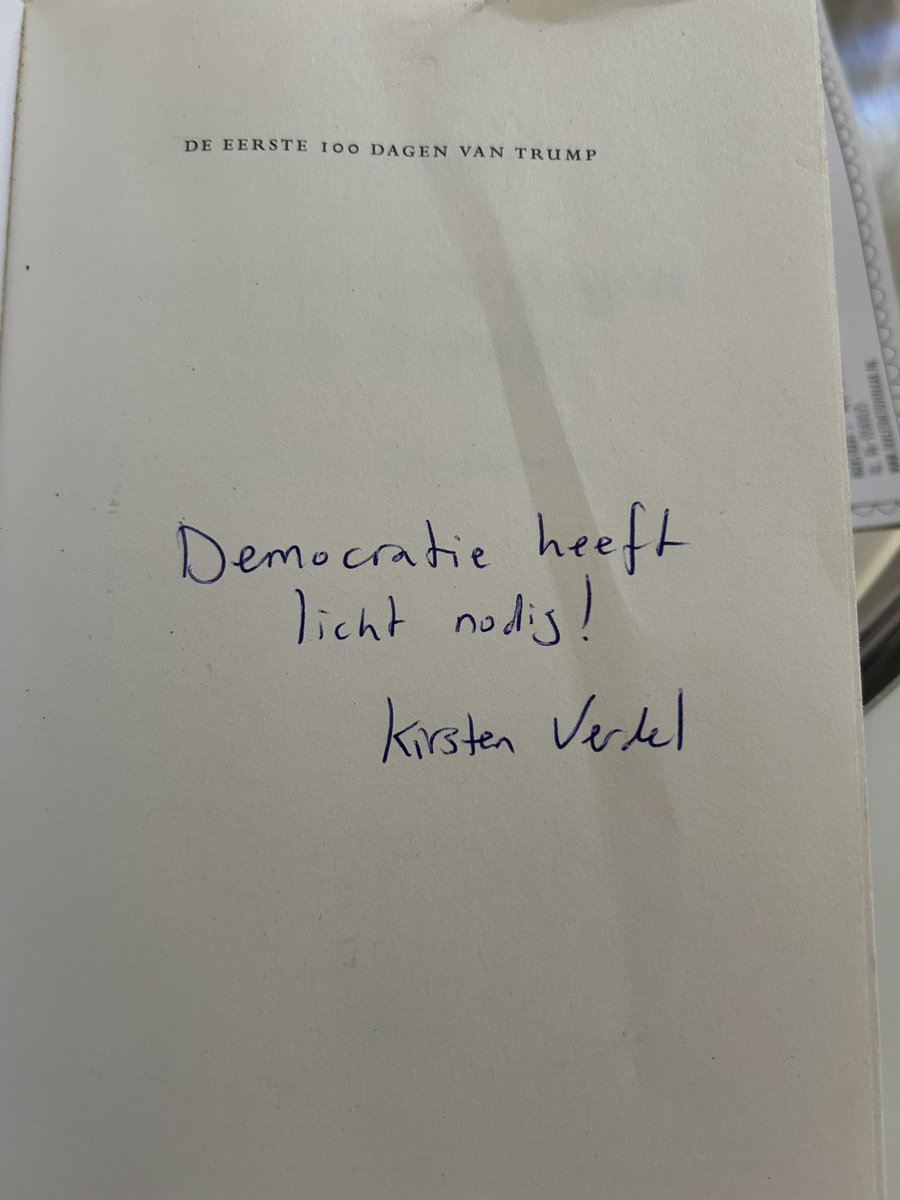 DE EERSTE 100 DAGEN VAN TRUMP
Democratie heeft
licht nodig!
Kirsten Verdel